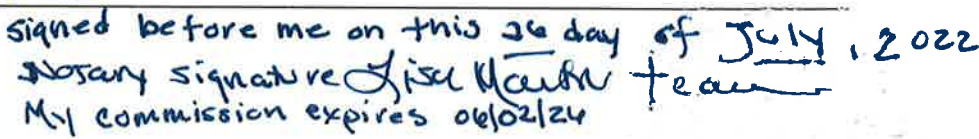 signed before me on this 26 day of July, 2022
Notary signature Lisa
My commission expires 06/02/24